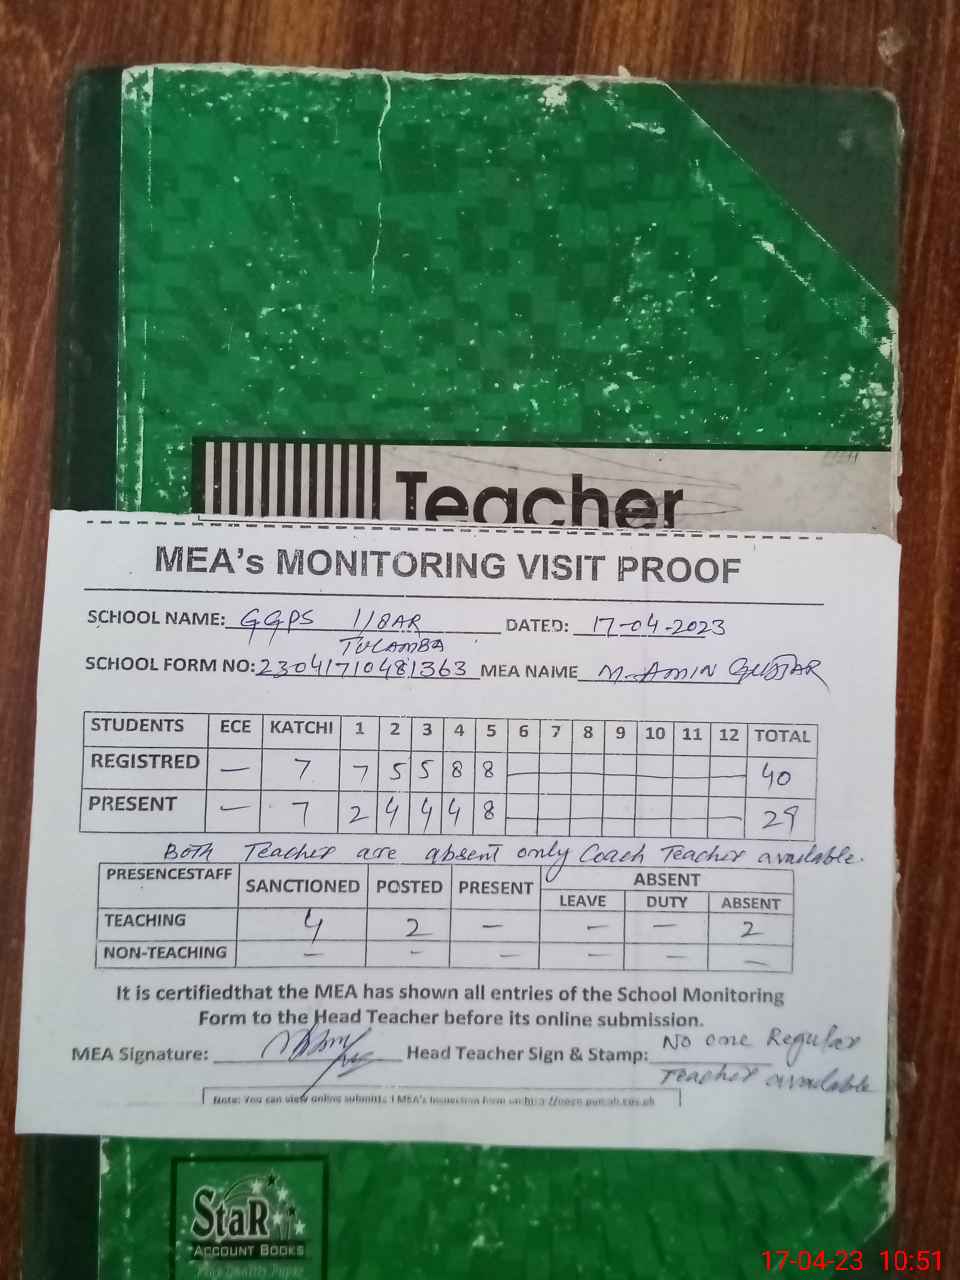 Teacher
MEA's MONITORING VISIT PROOF
SCHOOL NAME: GGPS 1/8AR DATED: 17-04-2023
TULAMBA
SCHOOL FORM NO: 23041710481363 MEA NAME M. AMIN GUJJAR
STUDENTS ECE KATCHI 1 2 3 4 5 6 7 8 9 10 11 12 TOTAL
REGISTRED — 7 7 5 5 8 8 40
PRESENT — 7 2 4 4 4 8 29
Both Teacher are absent only Coach Teacher available.
PRESENCESTAFF SANCTIONED POSTED PRESENT ABSENT
LEAVE DUTY ABSENT
TEACHING 4 2 — — — 2
NON-TEACHING — — — — — —
It is certifiedthat the MEA has shown all entries of the School Monitoring
Form to the Head Teacher before its online submission.
MEA Signature: Head Teacher Sign & Stamp: No one Regular
Teacher available
Note: You can view online submitted MEA's Inspection form on
StaR
ACCOUNT BOOKS
Fine Quality Paper
17-04-23 10:51